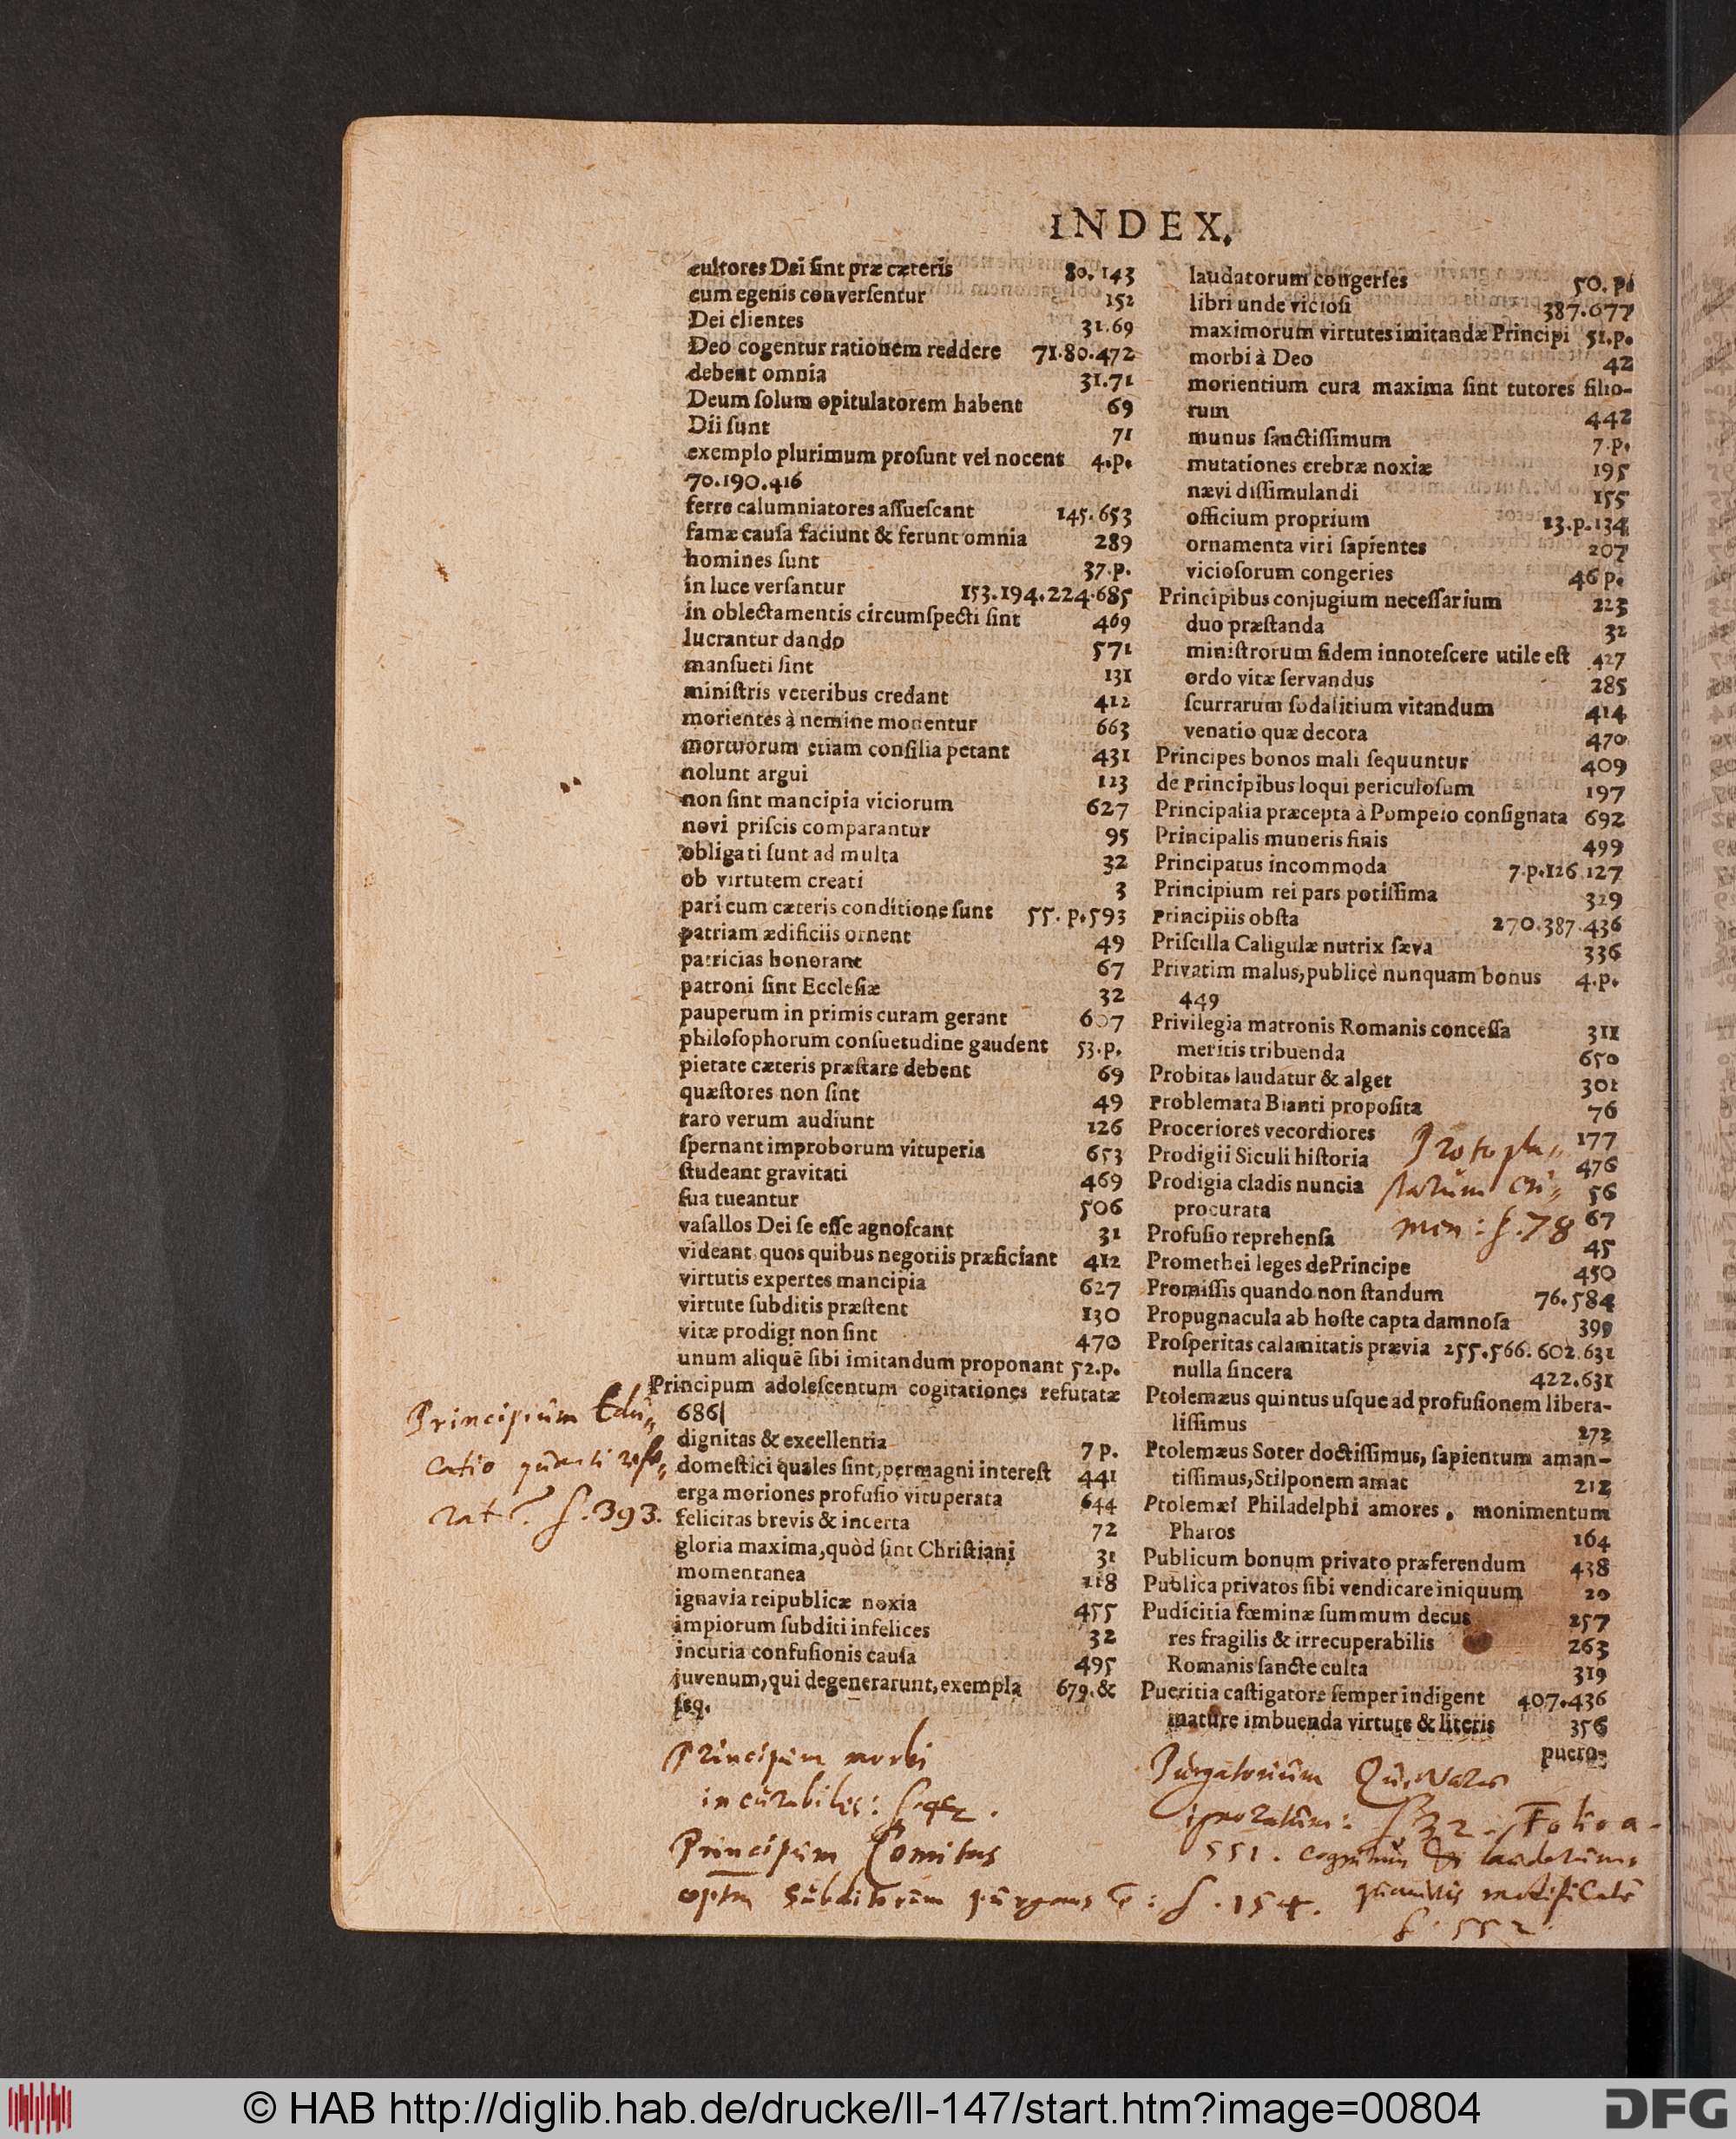 INDEX.
cultores Dei ſint præ cæteris 80.143
cum egenis converſentur 152
Dei clientes 31.69
Deo cogentur rationem reddere 71.80.472
debent omnia 31.71
Deum ſolum opitulatorem habent 69
Dii ſunt 71
exemplo plurimum proſunt vel nocent 4.p.
70.190.416
ferre calumniatores aſſueſcant 145.653
famæ cauſa faciunt & ferunt omnia 289
homines ſunt 37.p.
in luce verſantur 153.194.224.685
in oblectamentis circumſpecti ſint 469
lucrantur dando 571
manſueti ſint 131
miniſtris veteribus credant 412
morientes à nemine monentur 663
mortuorum etiam conſilia petant 431
nolunt argui 123
non ſint mancipia viciorum 627
novi priſcis comparantur 95
obligati ſunt ad multa 32
ob virtutem creati 3
pari cum cæteris conditione ſunt 55.p.593
patriam ædificiis ornent 49
patricias honorant 67
patroni ſint Eccleſiæ 32
pauperum in primis curam gerant 607
philoſophorum conſuetudine gaudent 53.p.
pietate cæteris præſtare debent 69
quæſtores non ſint 49
raro verum audiunt 126
ſpernant improborum vituperia 653
ſtudeant gravitati 469
ſua tueantur 506
vaſallos Dei ſe eſſe agnoſcant 31
videant quos quibus negotiis præficiant 412
virtutis expertes mancipia 627
virtute ſubditis præſtent 130
vitæ prodigi non ſint 470
unum aliquē ſibi imitandum proponant 52.p.
Principum adoleſcentum cogitationes refutatæ
686
dignitas & excellentia 7 p.
domeſtici quales ſint, permagni intereſt 441
erga moriones profuſio vituperata 644
felicitas brevis & incerta 72
gloria maxima, quòd ſint Chriſtiani 31
momentanea 118
ignavia reipublicæ noxia 455
impiorum ſubditi infelices 32
incuria confuſionis cauſa 495
juvenum, qui degenerarunt, exempla 679.&
ſeq.
Principium Edu„
catio quanti refe„
rat? f. 393.
Principum morbi
incurabiles:
Principum Comitas
optm Subditorum purgans ē: f. 154.
laudatorum congeries 50.p.
libri unde vicioſi 387.677
maximorum virtutes imitandæ Principi 51.p.
morbi à Deo 42
morientium cura maxima ſint tutores filio-
rum 442
munus ſanctiſſimum 7.p.
mutationes crebræ noxiæ 195
nævi diſſimulandi 155
officium proprium 13.p.134
ornamenta viri ſapientes 207
vicioſorum congeries 46 p.
Principibus conjugium neceſſarium 223
duo præſtanda 32
miniſtrorum fidem innoteſcere utile eſt 427
ordo vitæ ſervandus 285
ſcurrarum ſodalitium vitandum 414
venatio quæ decora 470
Principes bonos mali ſequuntur 409
de Principibus loqui periculoſum 197
Principalia præcepta à Pompeio conſignata 692
Principalis muneris finis 499
Principatus incommoda 7.p.126.127
Principium rei pars potiſſima 329
Principiis obſta 270.387.436
Priſcilla Caligulæ nutrix ſæva 336
Privatim malus, publicè nunquam bonus 4.p.
449
Privilegia matronis Romanis conceſſa 311
meritis tribuenda 650
Probitas laudatur & alget 301
Problemata Bianti propoſita 76
Proceriores vecordiores 177
Prodigii Siculi hiſtoria 476
Prodigia cladis nuncia 56
procurata 67
Profuſio reprehenſa 45
Promethei leges de Principe 450
Promiſſis quando non ſtandum 76.584
Propugnacula ab hoſte capta damnoſa 399
Proſperitas calamitatis prævia 255.566.602.631
nulla ſincera 422.631
Ptolemæus quintus uſque ad profuſionem libera-
liſſimus 272
Ptolemæus Soter doctiſſimus, ſapientum aman-
tiſſimus, Stilponem amat 212
Ptolemæi Philadelphi amores, monimentum
Pharos 164
Publicum bonum privato præferendum 438
Publica privatos ſibi vendicare iniquum 20
Pudicitia fœminæ ſummum decus 257
res fragilis & irrecuperabilis 263
Romanis ſancte culta 319
Pueritia caſtigatore ſemper indigent 407.436
mature imbuenda virtute & literis 356
pueros
Protopla„
starum Cri„
men: f. 78
Purgatorium
ignoratum: f 32.
551.
f. 552.
© HAB http://diglib.hab.de/drucke/li-147/start.htm?image=00804
DFG